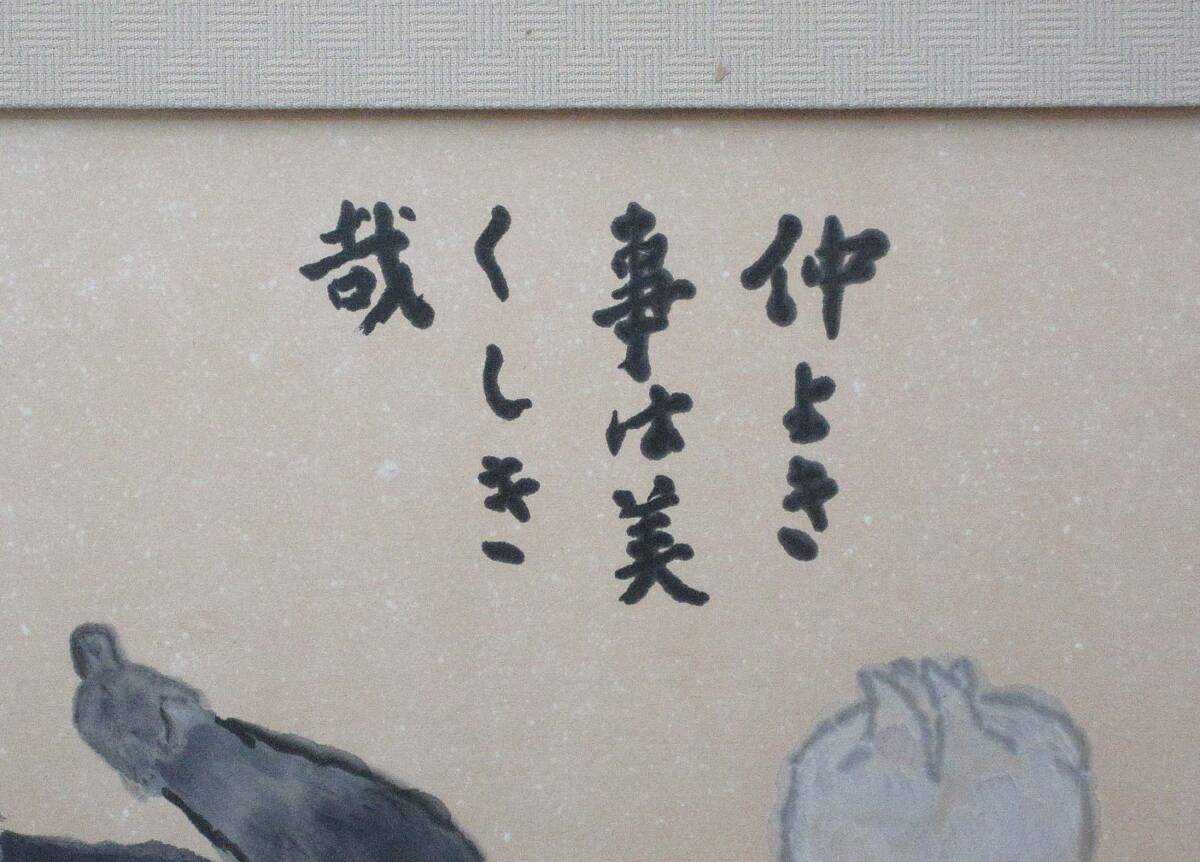 仲よき
事は美
くしき
哉